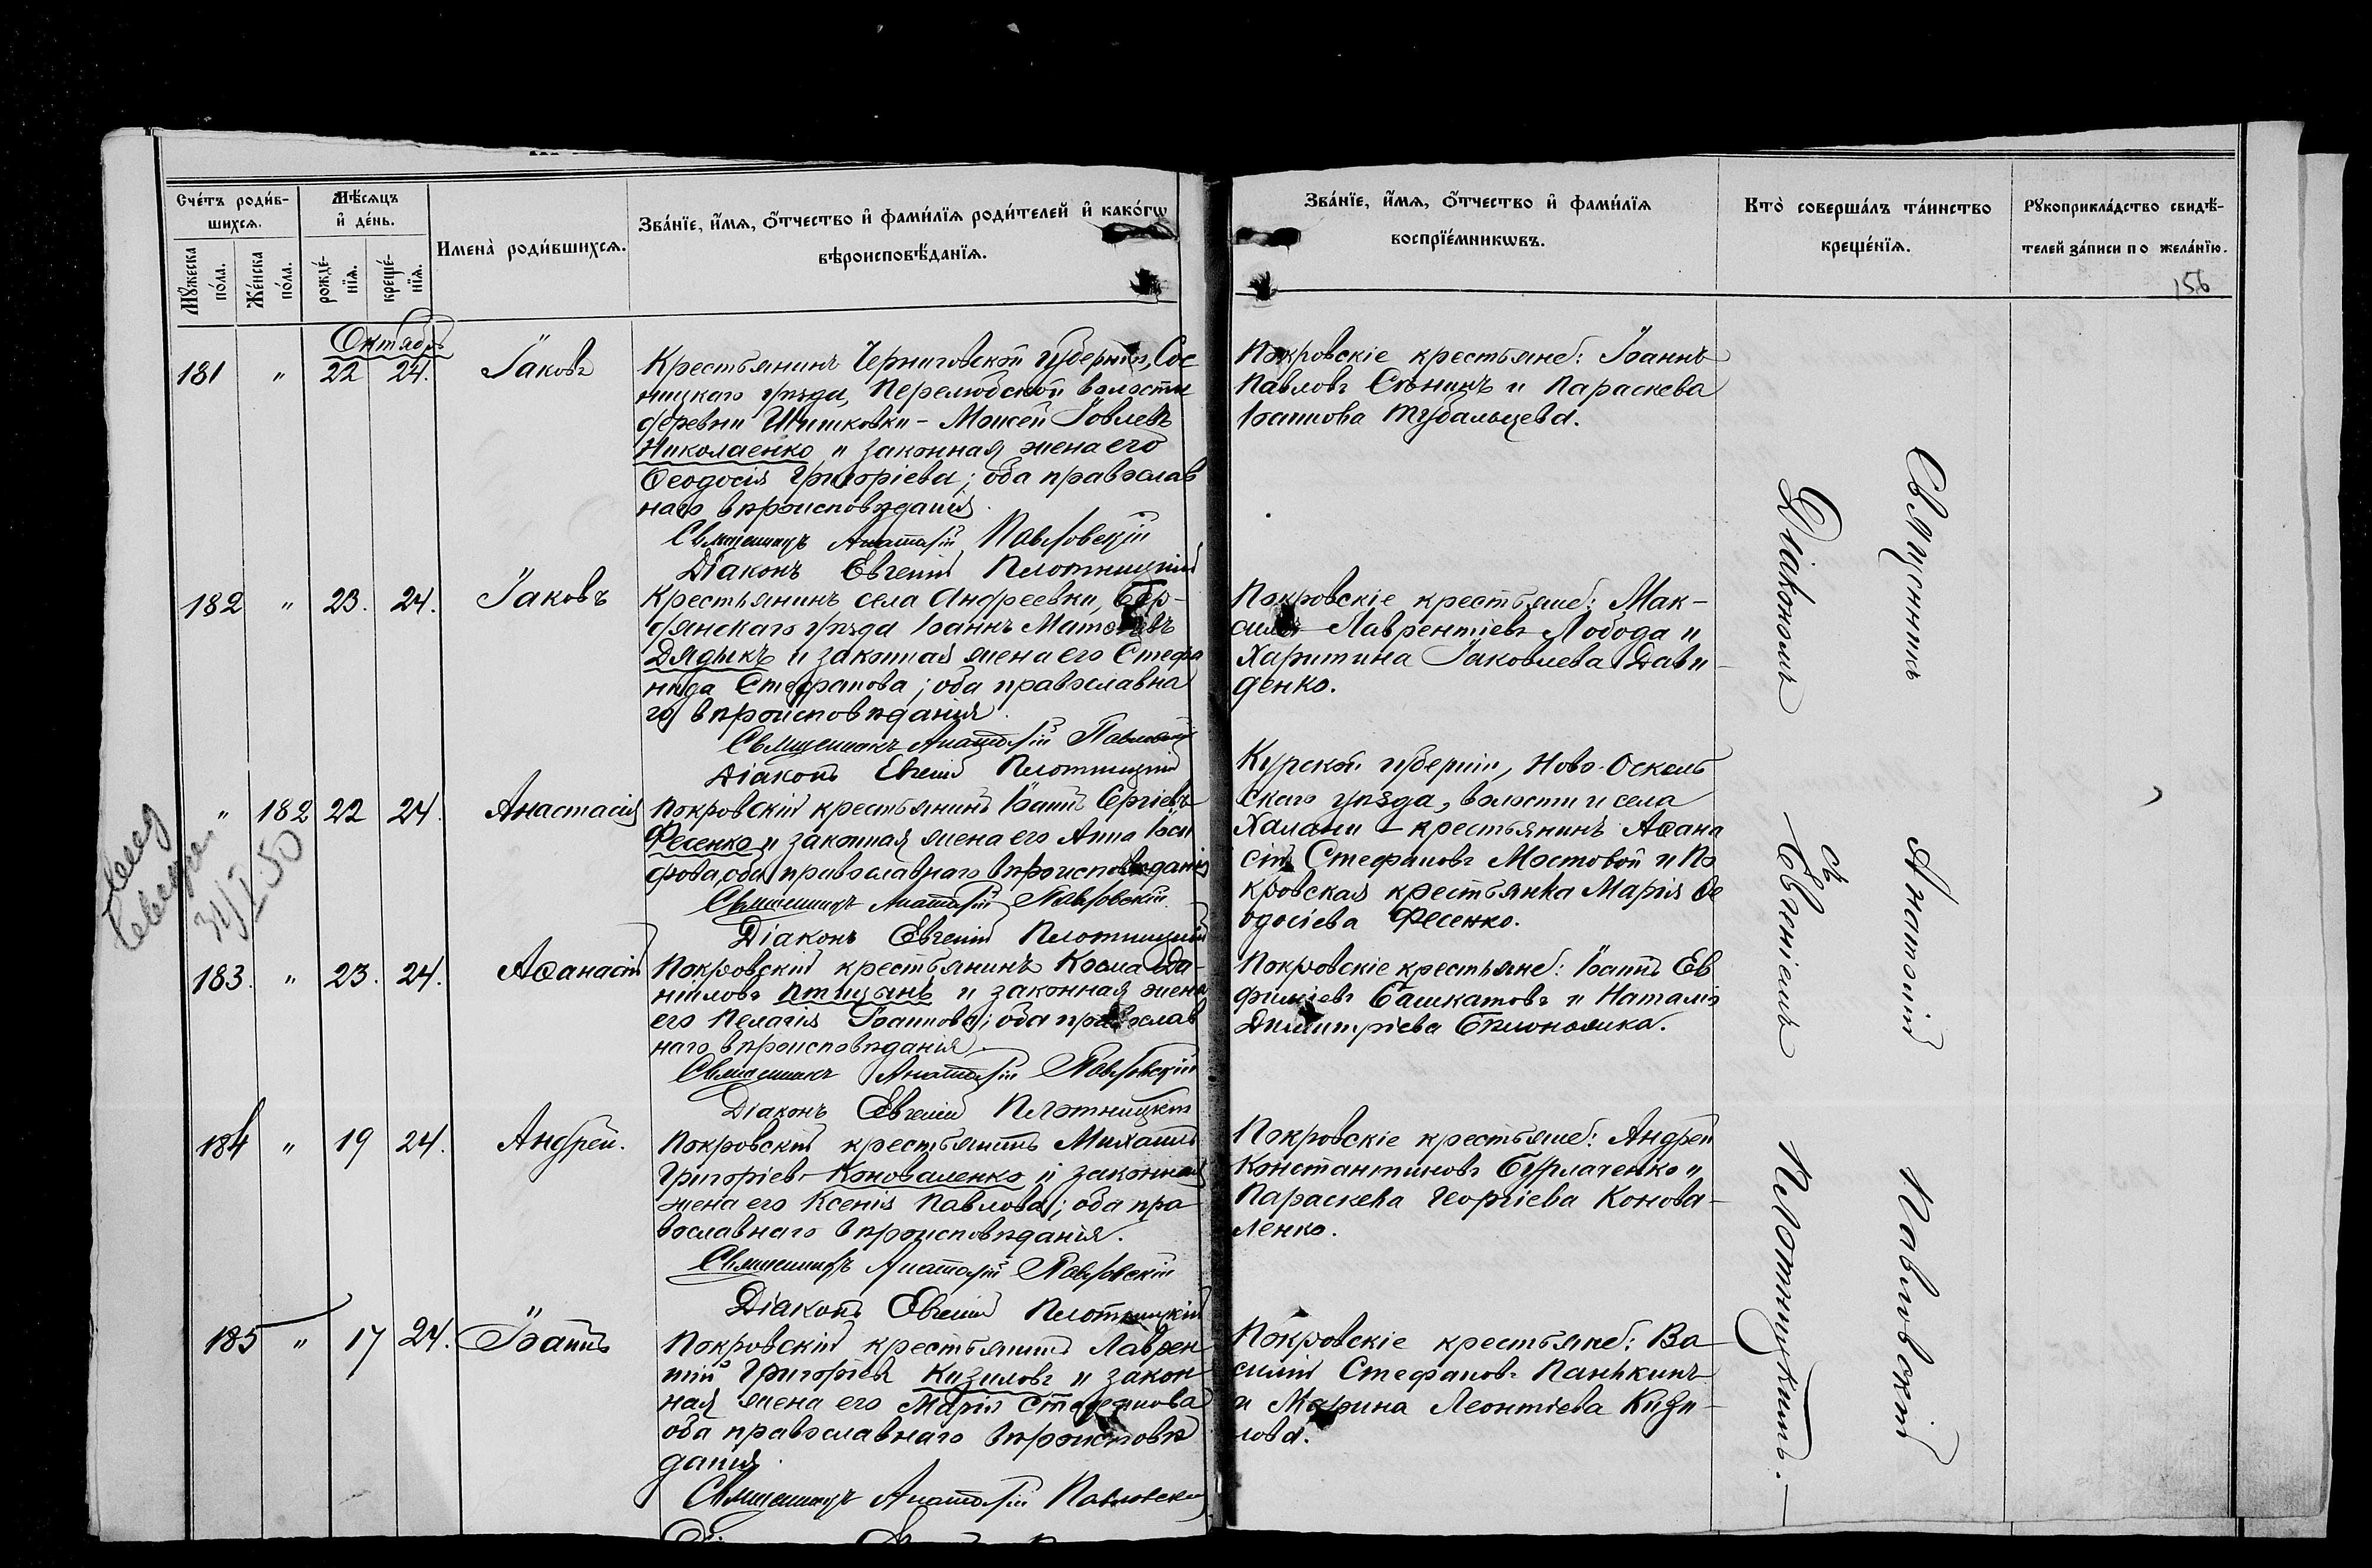 Сче́тъ роди́в-
шихсѧ.
Мѣ́сѧцъ
и҆ де́нь.
Мꙋ́жеска
по́ла.
Же́нска
по́ла.
рожде́-
нїѧ.
креще́-
нїѧ.
Имена̀ роди́вшихсѧ.
Зва́нїе, и҆́мѧ, ѻ҆́тчество и҆ фами́лїѧ роди́телей и҆ како́гѡ
вѣроисповѣ́данїѧ.
Зва́нїе, и҆́мѧ, ѻ҆́тчество и҆ фами́лїѧ
воспрїе́мникѡвъ.
Кто̀ соверша́лъ та́инство
креще́нїѧ.
Рꙋкоприкла́дство свидѣ́-
телей за́писи по жела́нїю.
156
Октябрь
181 " 22 24. Іаковъ
Крестьянинъ Черниговской губерніи, Сос
ницкаго уѣзда, Перелюбской волости
деревни Шишковки - Моисей Іовлевъ
Николаенко и законная жена его
Ѳеодосія Григоріева; оба православ
наго вѣроисповѣданія.
Священникъ Анатолій Павловскій
Діаконъ Евгеній Плотницкій
Покровскіе крестьяне: Іоаннъ
Павловъ Сѣнинъ и Параскева
Іоаннова Тубальцева.
182 " 23. 24. Іаковъ
Крестьянинъ села Андреевки, Бер-
дянскаго уѣзда Іоаннъ Матѳіевъ
Дядикъ и законная жена его Стефа
нида Стефанова; оба православна
го вѣроисповѣданія.
Священникъ Анатолій Павловскій
Діаконъ Евгеній Плотницкій
Покровскіе крестьяне: Мак-
симъ Лаврентіевъ Лобода и
Харитина Іаковлева Дави-
денко.
" 182 22 24. Анастасія
Покровскій крестьянинъ Іоаннъ Сергіевъ
Фесенко и законная жена его Анна Іоси
фова, оба православнаго вѣроисповѣданія
Священникъ Анатолій Павловскій
Діаконъ Евгеній Плотницкій
Курской губерніи, Ново-Осколь
скаго уѣзда, волости и села
Халани - крестьянинъ Аѳана
сій Стефановъ Мостовой и По
кровская крестьянка Марія Ѳе
одосіева Фесенко.
31/I.50
183. " 23. 24. Аѳанасій
Покровскій крестьянинъ Косма Да-
ніиловъ Птицынъ и законная жена
его Пелагія Іоаннова; оба православ
наго вѣроисповѣданія.
Священникъ Анатолій Павловскій
Діаконъ Евгеній Плотницкій
Покровскіе крестьяне: Іоаннъ Ев
фиміевъ Башкатовъ и Наталія
Димитріева
184 " 19 24. Андрей.
Покровскій крестьянинъ Михаилъ
Григоріевъ Коноваленко и законная
жена его Ксенія Павлова; оба пра
вославнаго вѣроисповѣданія.
Священникъ Анатолій Павловскій
Діаконъ Евгеній Плотницкій
Покровскіе крестьяне: Андрей
Константиновъ Бурлаченко и
Параскева Георгіева Конова-
ленко.
185 " 17 24. Іоаннъ
Покровскій крестьянинъ Лаврен
тій Григоріевъ Кизиловъ и закон
ная жена его Марія Стефанова
оба православнаго вѣроисповѣ
данія.
Священникъ Анатолій Павловскій
Покровскіе крестьяне: Ва-
силій Стефановъ Панькинъ
и Марина Леонтіева Кизи-
лова.
Священникъ Анатолій Павловскій
съ
Діакономъ Евгеніемъ Плотницкимъ.